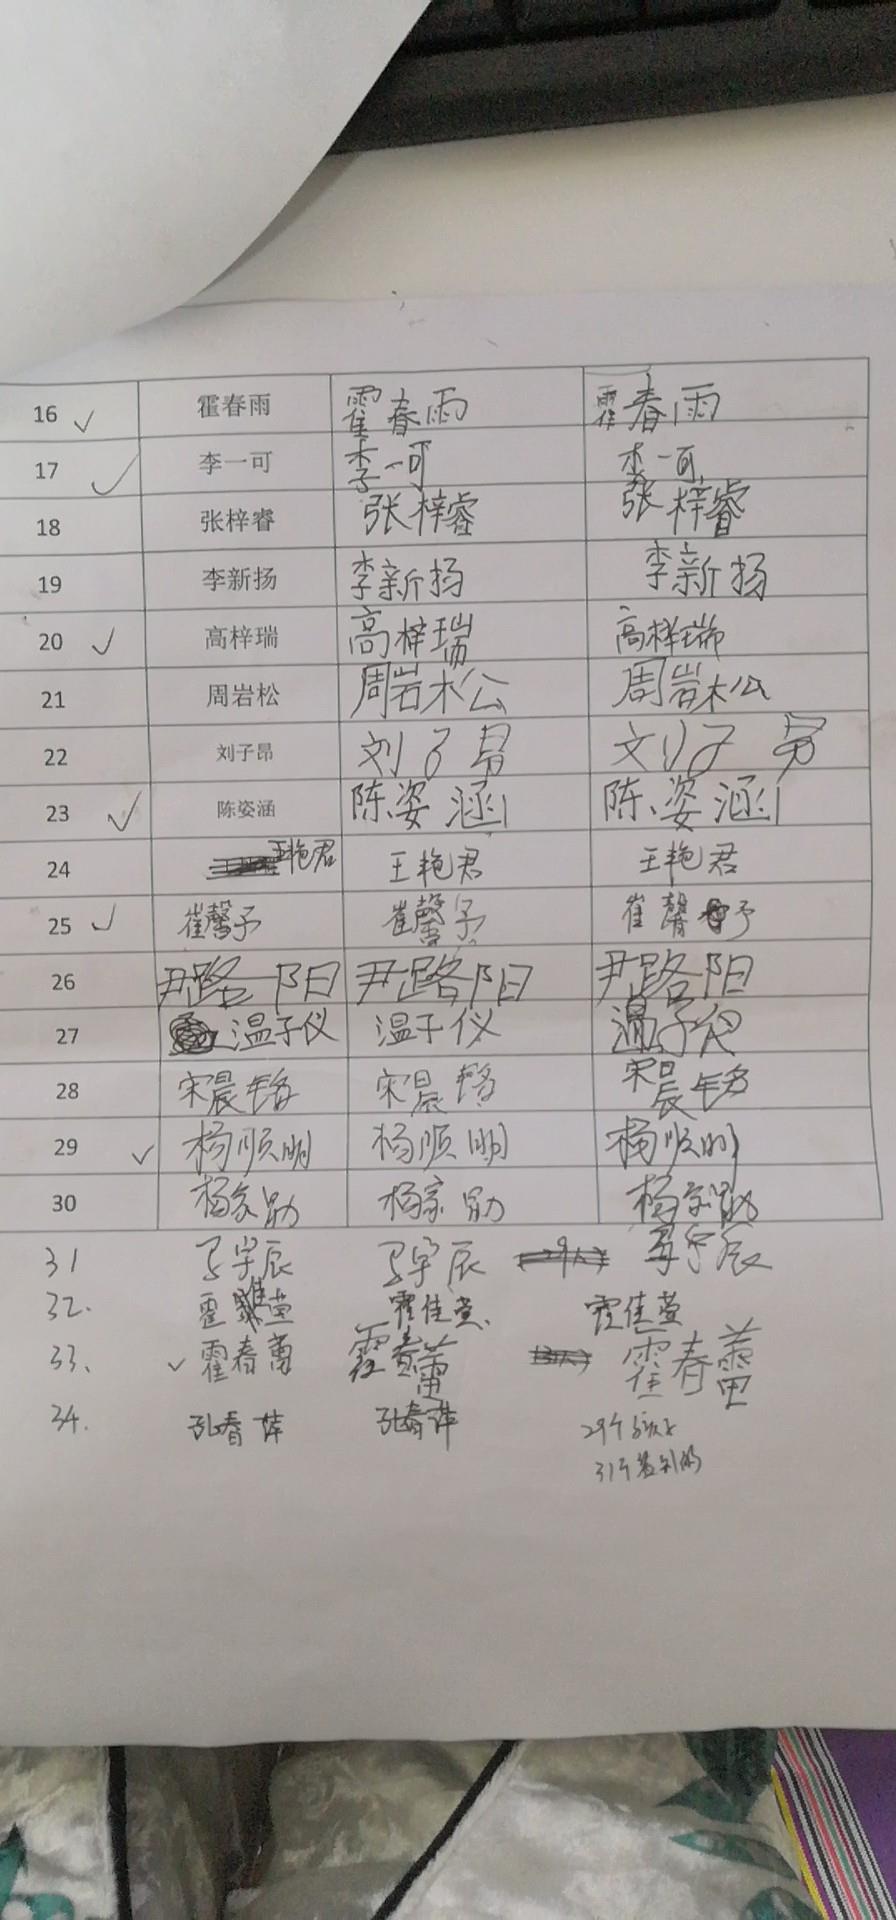 16 霍春雨 霍春雨 霍春雨
17 李一可 李一可 李一可
18 张梓睿 张梓睿 张梓睿
19 李新扬 李新扬 李新扬
20 高梓瑞 高梓瑞 高梓瑞
21 周岩松 周岩松 周岩松
22 刘子昂 刘子昂 刘子昂
23 陈姿涵 陈姿涵 陈姿涵
24 王艳君 王艳君 王艳君
25 崔馨予 崔馨予 崔馨予
26 尹路阳 尹路阳 尹路阳
27 温子仪 温子仪 温子仪
28 宋晨铭 宋晨铭 宋晨铭
29 杨顺明 杨顺明 杨顺明
30 杨家勋 杨家勋 杨家勋
31 马宇辰 马宇辰 马宇辰
32. 霍佳萱 霍佳萱 霍佳萱
33. 霍春蕾 霍春蕾 霍春蕾
34. 孔春萍 孔春萍
29个
31个